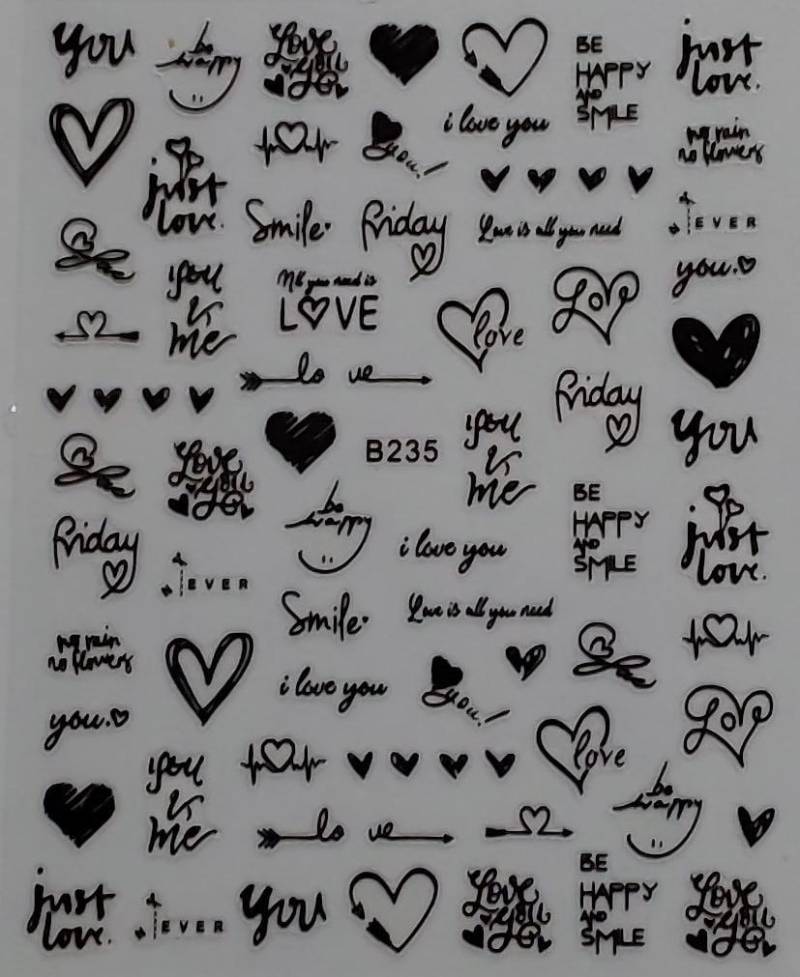 You
be
happy
Love
You
BE
HAPPY
AND
SMILE
just
love.
i love you
you!
no rain
no flowers
just
love.
Smile
friday
Love is all you need
EVER
you
&
me
All you need is
LOVE
love
Love
you.
lo ve
friday
You
B235
you
&
me
Love
You
be
happy
i love you
BE
HAPPY
AND
SMILE
just
love.
friday
EVER
Smile
Love is all you need
no rain
no flowers
i love you
you!
you.
Love
love
you
&
me
be
happy
lo ve
just
love.
EVER
You
Love
You
BE
HAPPY
AND
SMILE
Love
You